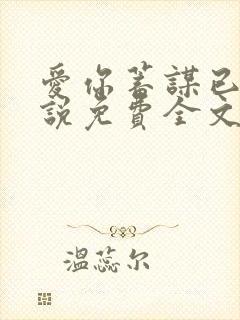 愛你蓄謀已
說免費全文
溫蕊尔